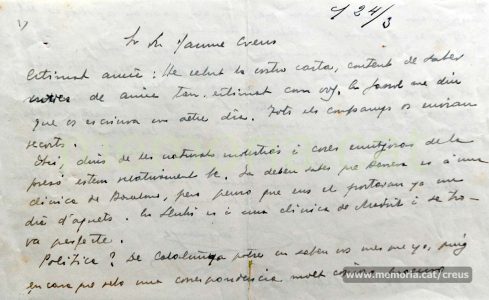 24/3
Sr Dn Jaume Creus
Estimat amic: He rebut la vostra carta, content de saber
noves de amic tan estimat com vos. En farol me diu
que os escriura un altre dia. Tots els companys os envian
recorts.
Aqui, dins de les naturals molesties i coses enutjoses de la
presó estem relativament be. Ja deben saber que es á una
clinica de Barcelona, pero penso que ens el portaran ya un
dia d'aquets. En es á una clinica de Madrit i se tro-
va perfecte.
Politica? De Catalunya potser en saben vos mes que yo, puig
encara que rebo una correspondencia molt
www.memoria.cat/creus